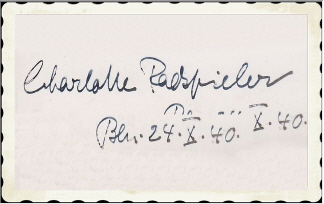 Charlotte Radspieler
Bln. 24. X. 40. X. 40.